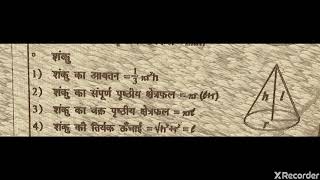 ° शंकु
1) शंकु का आयतन = 1/3 πr²h
2) शंकु का संपूर्ण पृष्ठीय क्षेत्रफल = πr (l+r)
3) शंकु का वक्र पृष्ठीय क्षेत्रफल = πrl
4) शंकु की तिर्यक ऊँचाई = √h²+r² = l
h l
r
XRecorder